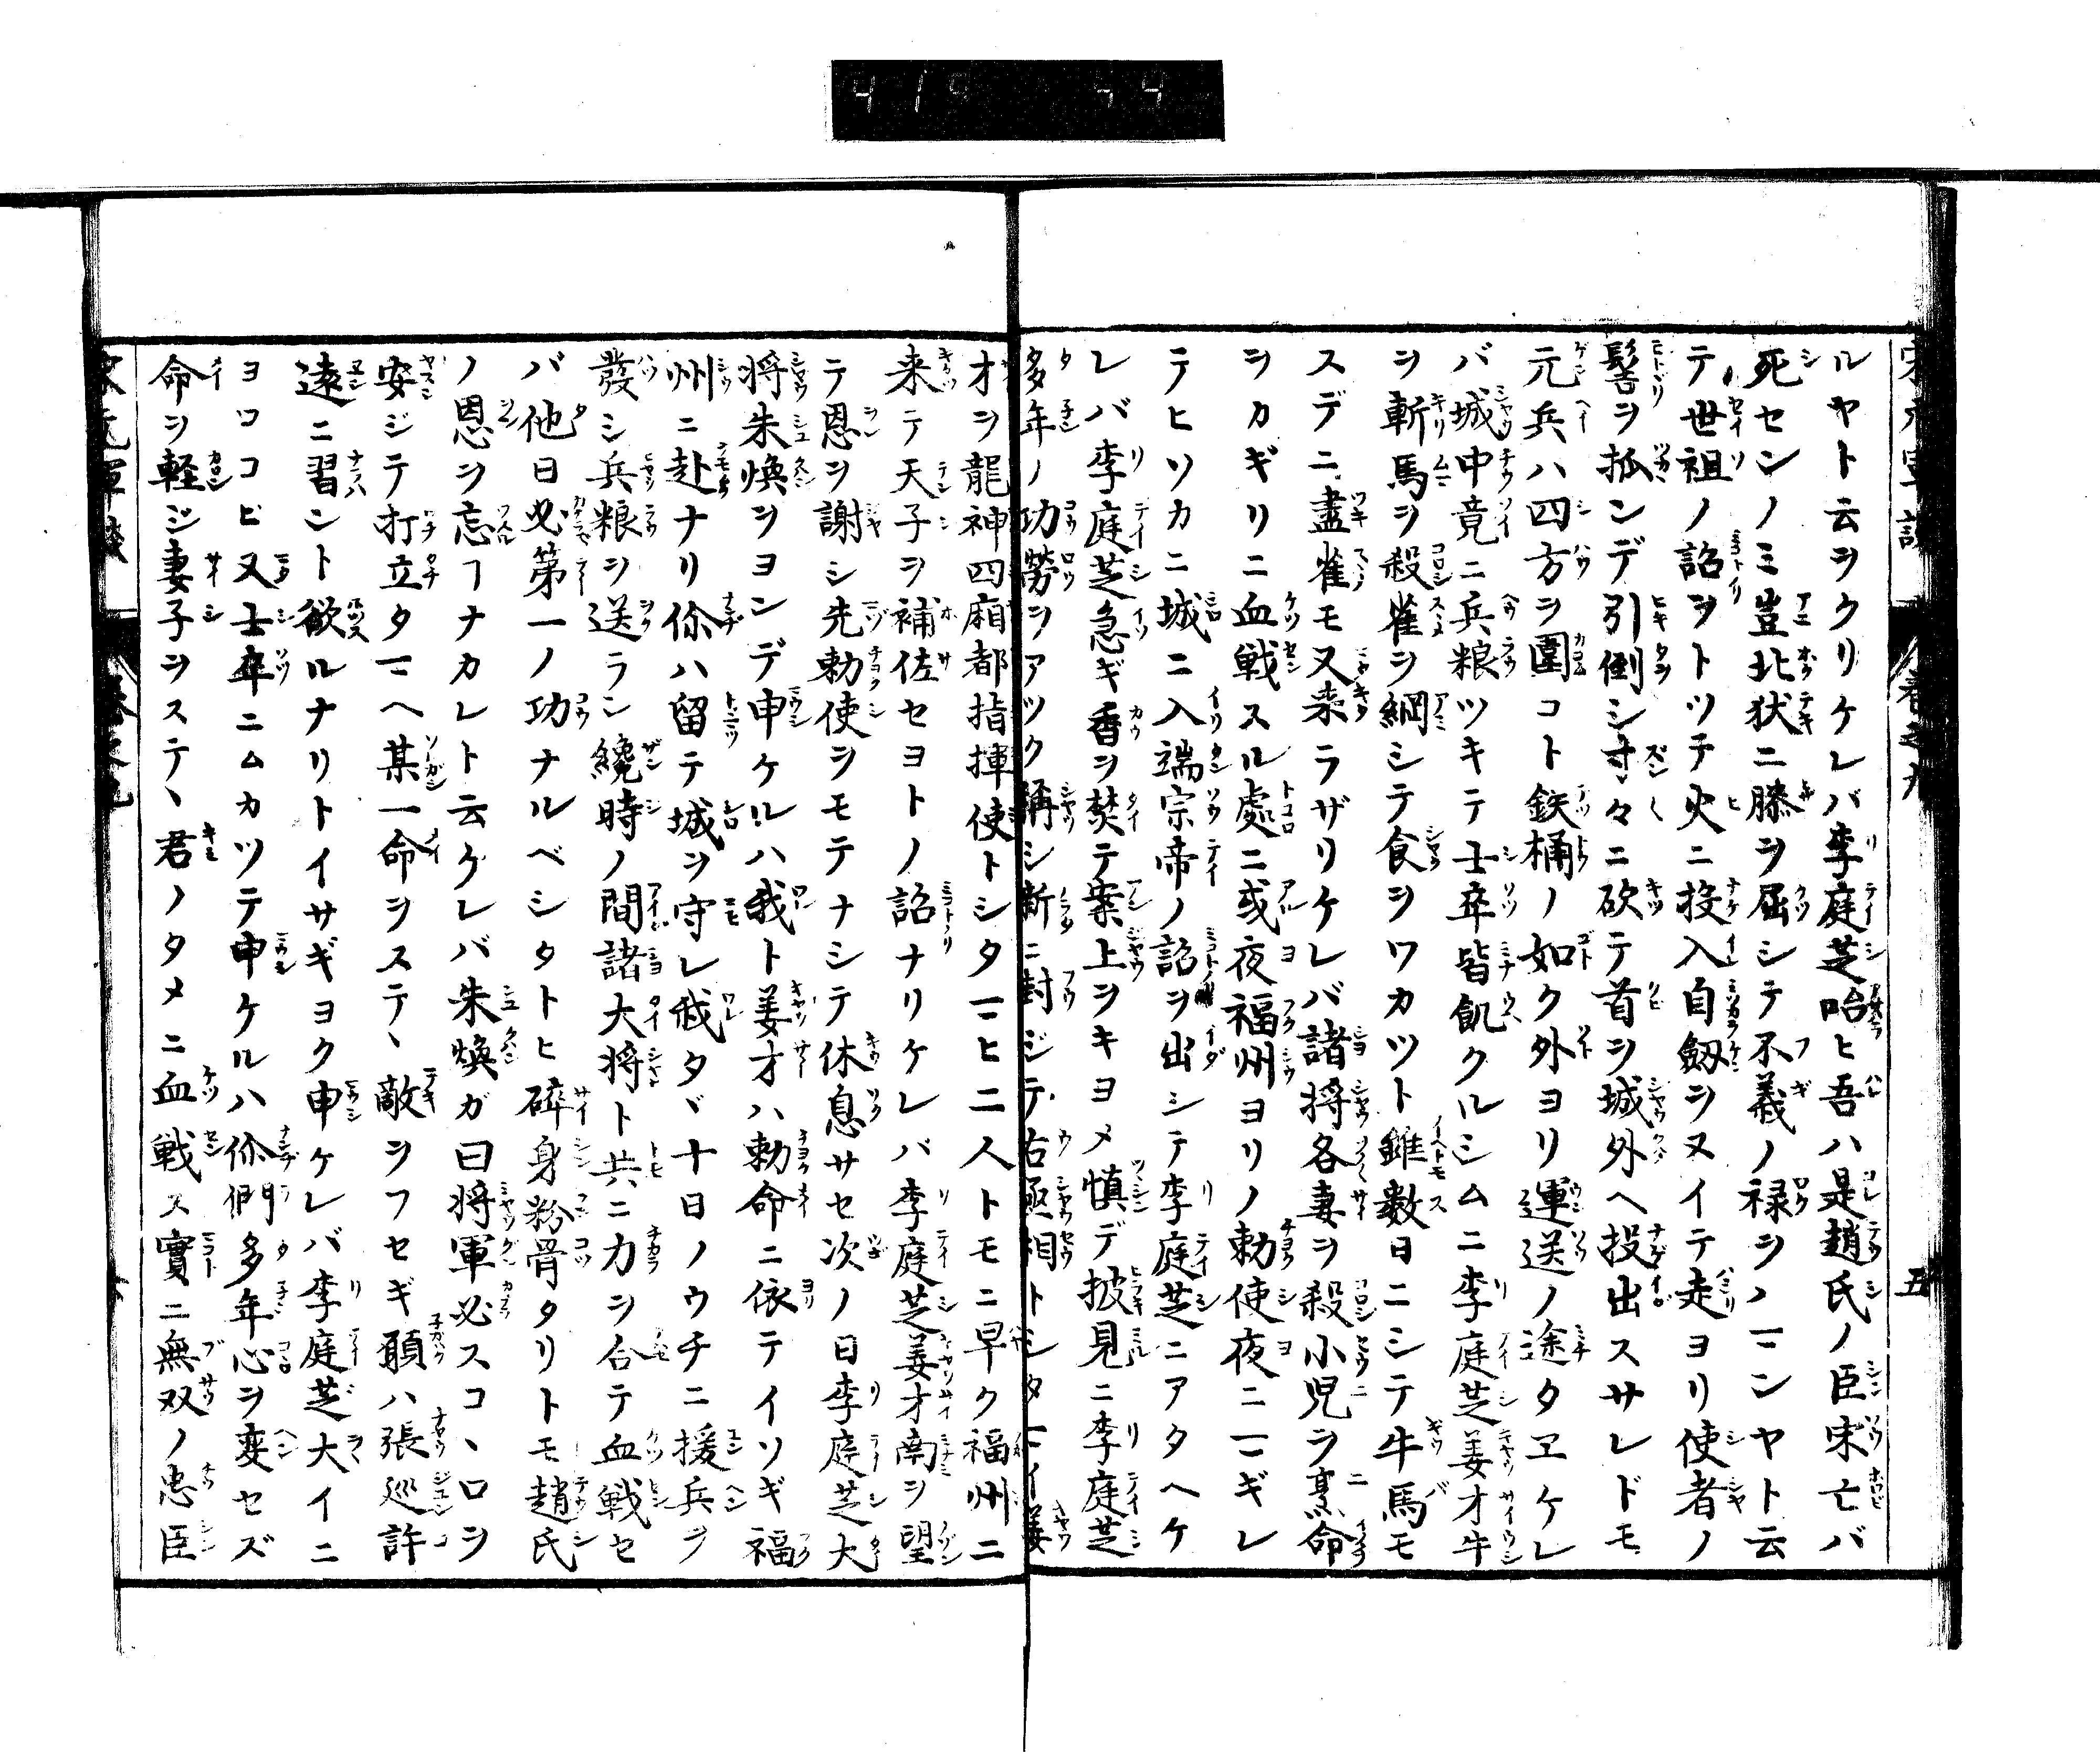 ルヤト云ヲクリケレバ李庭芝咍ヒ吾ハ是趙氏ノ臣宋亡バ
死センノミ豈北狄ニ膝ヲ屈シテ不義ノ禄ヲノマンヤト云
テ世祖ノ詔ヲトツテ火ニ投入自劔ヲヌイテ走ヨリ使者ノ
髻ヲ抓ンデ引倒シ寸々ニ砍テ首ヲ城外ヘ投出スサレドモ
元兵ハ四方ヲ圍コト鉄桶ノ如ク外ヨリ運送ノ途タヱケレ
バ城中竟ニ兵粮ツキテ士卒皆飢クルシムニ李庭芝姜才牛
ヲ斬馬ヲ殺雀ヲ網シテ食ヲワカツト雖数日ニシテ牛馬モ
スデニ盡雀モ又来ラザリケレバ諸将各妻ヲ殺小児ヲ烹命
ヲカギリニ血戦スル處ニ或夜福州ヨリノ勅使夜ニマギレ
テヒソカニ城ニ入端宗帝ノ詔ヲ出シテ李庭芝ニアタヘケ
レバ李庭芝急ギ香ヲ焚テ案上ヲキヨメ慎デ披見ニ李庭芝
多年ノ功勞ヲアツク稱シ新ニ封ジテ右丞相トシタマイ姜
才ヲ龍神四廂都指揮使トシタマヒ二人トモニ早ク福州ニ
来テ天子ヲ補佐セヨトノ詔ナリケレバ李庭芝姜才南ヲ望
テ恩ヲ謝シ先勅使ヲモテナシテ休息サセ次ノ日李庭芝大
将朱煥ヲヨンデ申ケルハ我ト姜才ハ勅命ニ依テイソギ福
州ニ赴ナリ伱ハ留テ城ヲ守レ我タヾ十日ノウチニ援兵ヲ
發シ兵粮ヲ送ラン纔時ノ間諸大将ト共ニ力ヲ合テ血戦セ
バ他日必第一ノ功ナルベシタトヒ碎身粉骨タリトモ趙氏
ノ恩ヲ忘ヿナカレト云ケレバ朱煥ガ曰将軍必スコヽロヲ
安ジテ打立タマヘ某一命ヲステヽ敵ヲフセギ願ハ張巡許
遠ニ習ント欲ルナリトイサギヨク申ケレバ李庭芝大イニ
ヨロコビ又士卒ニムカツテ申ケルハ伱們多年心ヲ変セズ
命ヲ軽ジ妻子ヲステヽ君ノタメニ血戦ス實ニ無双ノ忠臣